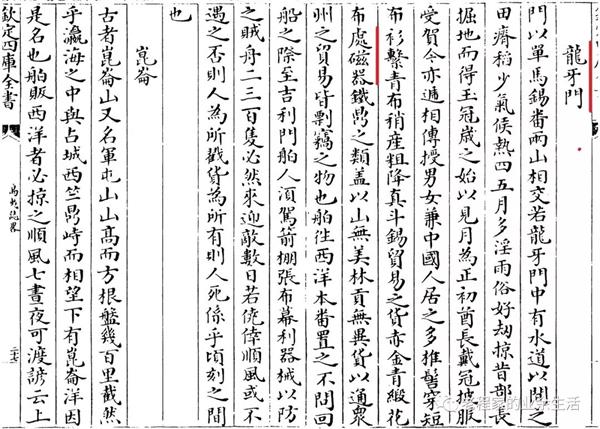 龍牙門
門以單馬錫番兩山相交若龍牙門中有水道以間之
田瘠稻少氣候熱四五月多淫雨俗好刼掠昔酋長
掘地而得玉冠歲之始以見月為正初酋長戴冠披服
受賀今亦遞相傳授男女兼中國人居之多椎髻穿短
布衫繫青布稍産粗降真斗錫貿易之貨赤金青緞花
布處磁器鐵鼎之類蓋以山無美林貢無異貨以通衆
州之貿易皆剽竊之物也舶往西洋本番置之不問回
船之際至吉利門舶人湏駕箭棚張布幕利器械以防
之賊舟二三百隻必然來迎敵數日若僥倖順風或不
遇之否則人為所戮貨為所有則人死係乎頃刻之間
也
崑崙
古者崑崙山又名軍屯山山高而方根盤幾百里截然
乎瀛海之中與占城西竺鼎峙而相望下有崑崙洋因
是名也舶販西洋者必掠之順風七晝夜可渡諺云上
欽定四庫全書
島夷誌畧